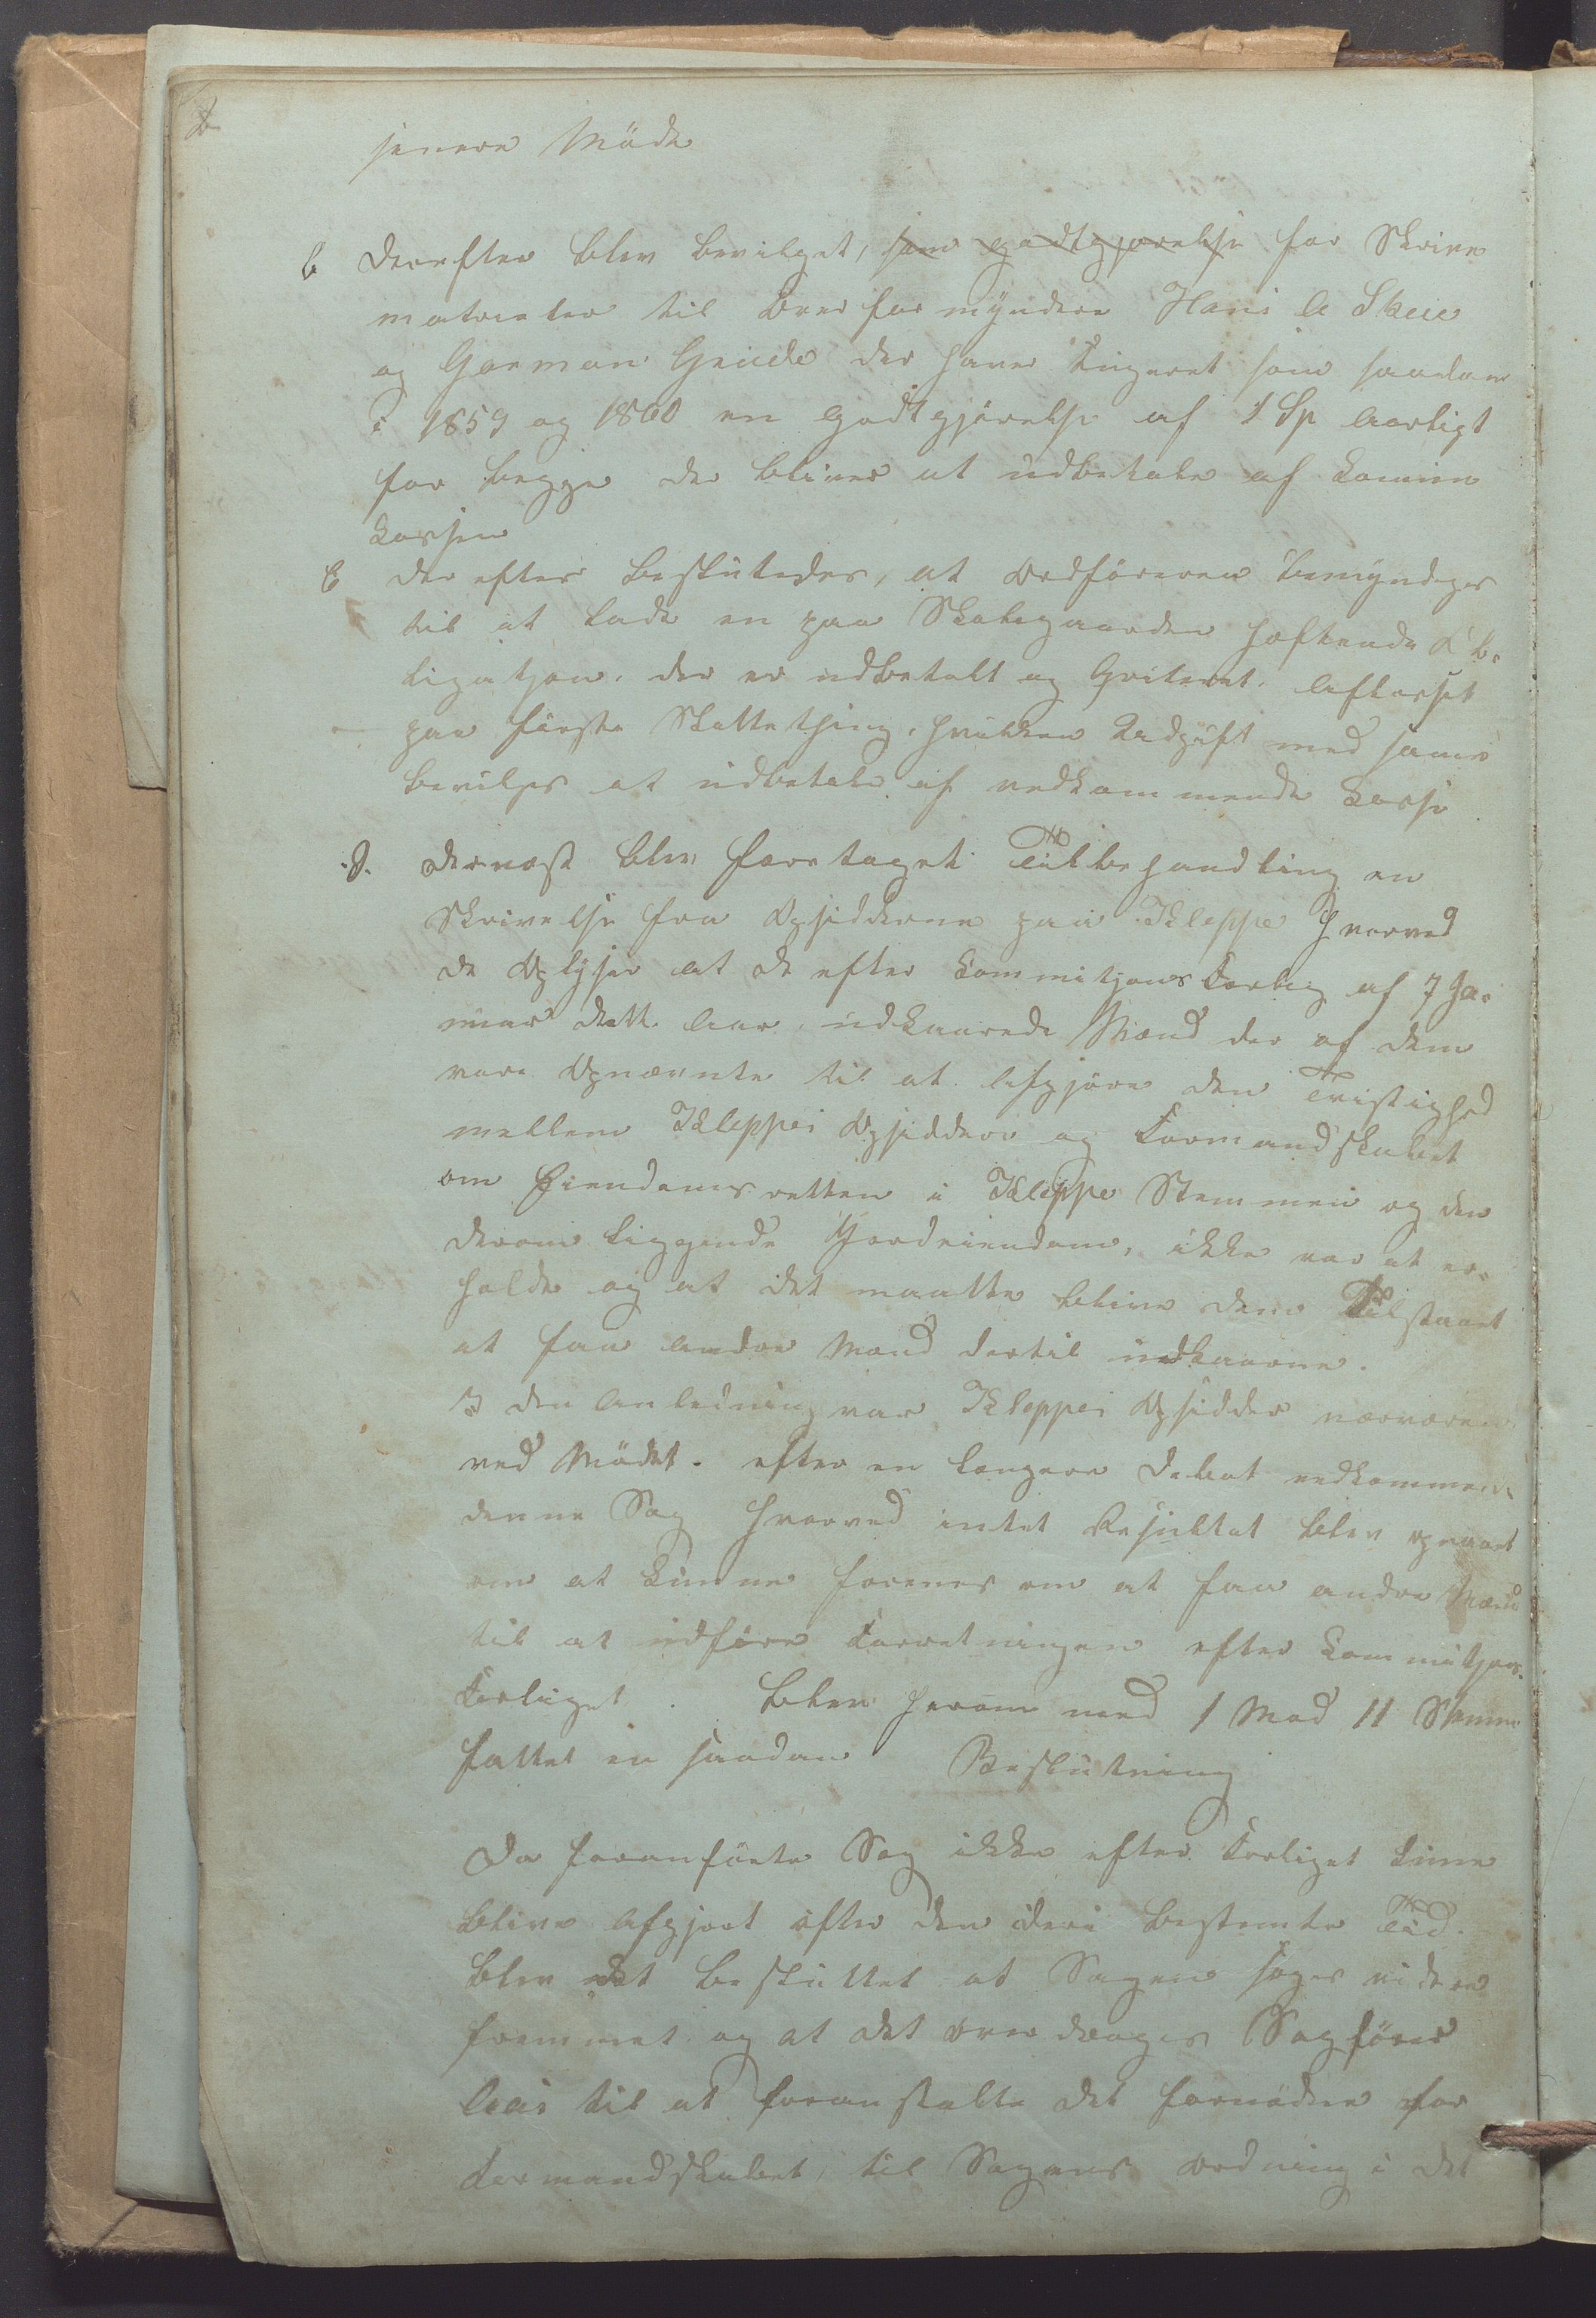 senere Møde
b Derefter blev bevilget, som godtgjørelse for Skrive
matrialer til Overformyndere Hans A Skeie
og Gorman Grude der haver fungeret som saadan
i 1859 og 1860 en godtgjørelse af 1 Sp Aarligt
for begge der bliver at udbetale af Komun
Kassen
C der efter besluttedes, at Ordføreren bemyndiges
til at lade en paa Skolegaarden heftende Ob-
ligatjon, der er udbetalt og Qviteret, Aflæsset
paa første Skattething, hvilken Udgift med samme
bevilges at udbetale af vedkommende Kasse
D. Dernæst blev foretaget Til behandling en
Skrivelse fra Opsidderne paa Kleppe hvorved
de Oplyser at de efter Kommitjons Forlig af 7 Ja-
nuar dette Aar, udkaarede Mænd der af dem
vare Opnævnte til at Afgjøre den Tvistighed
mellem Kleppes Opsiddere og Formandskabet
om Eiendomsretten i Kleppe Stemmen og den
derom liggende Jordeiendom, ikke var at er-
holde og at det maatte blive dem Tilstaaet
at faa Andre Mænd dertil udkaarne.
I den Anledning var Kleppes Opsidder nærværen
ved Mødet. efter en længere Debat vedkommen
denne Sag hvorved intet Resultat blev opnaaet
om at kunne forenes om at faa andre Mænd
til at udføre Forretningen efter Kommitjons
Forliget. blev herom med 1 Mod 11 Stemm
fattet en saadan Beslutning
Da foranførte Sag ikke efter Forliget kune
blive Afgjort efter den deri bestemte Tid.
blev det besluttet at Sagen søges videre
fremmet og at det overdrages Sagfører
til at foranstalte det fornødne for
Formandskabet, til Sagens Ordning i det